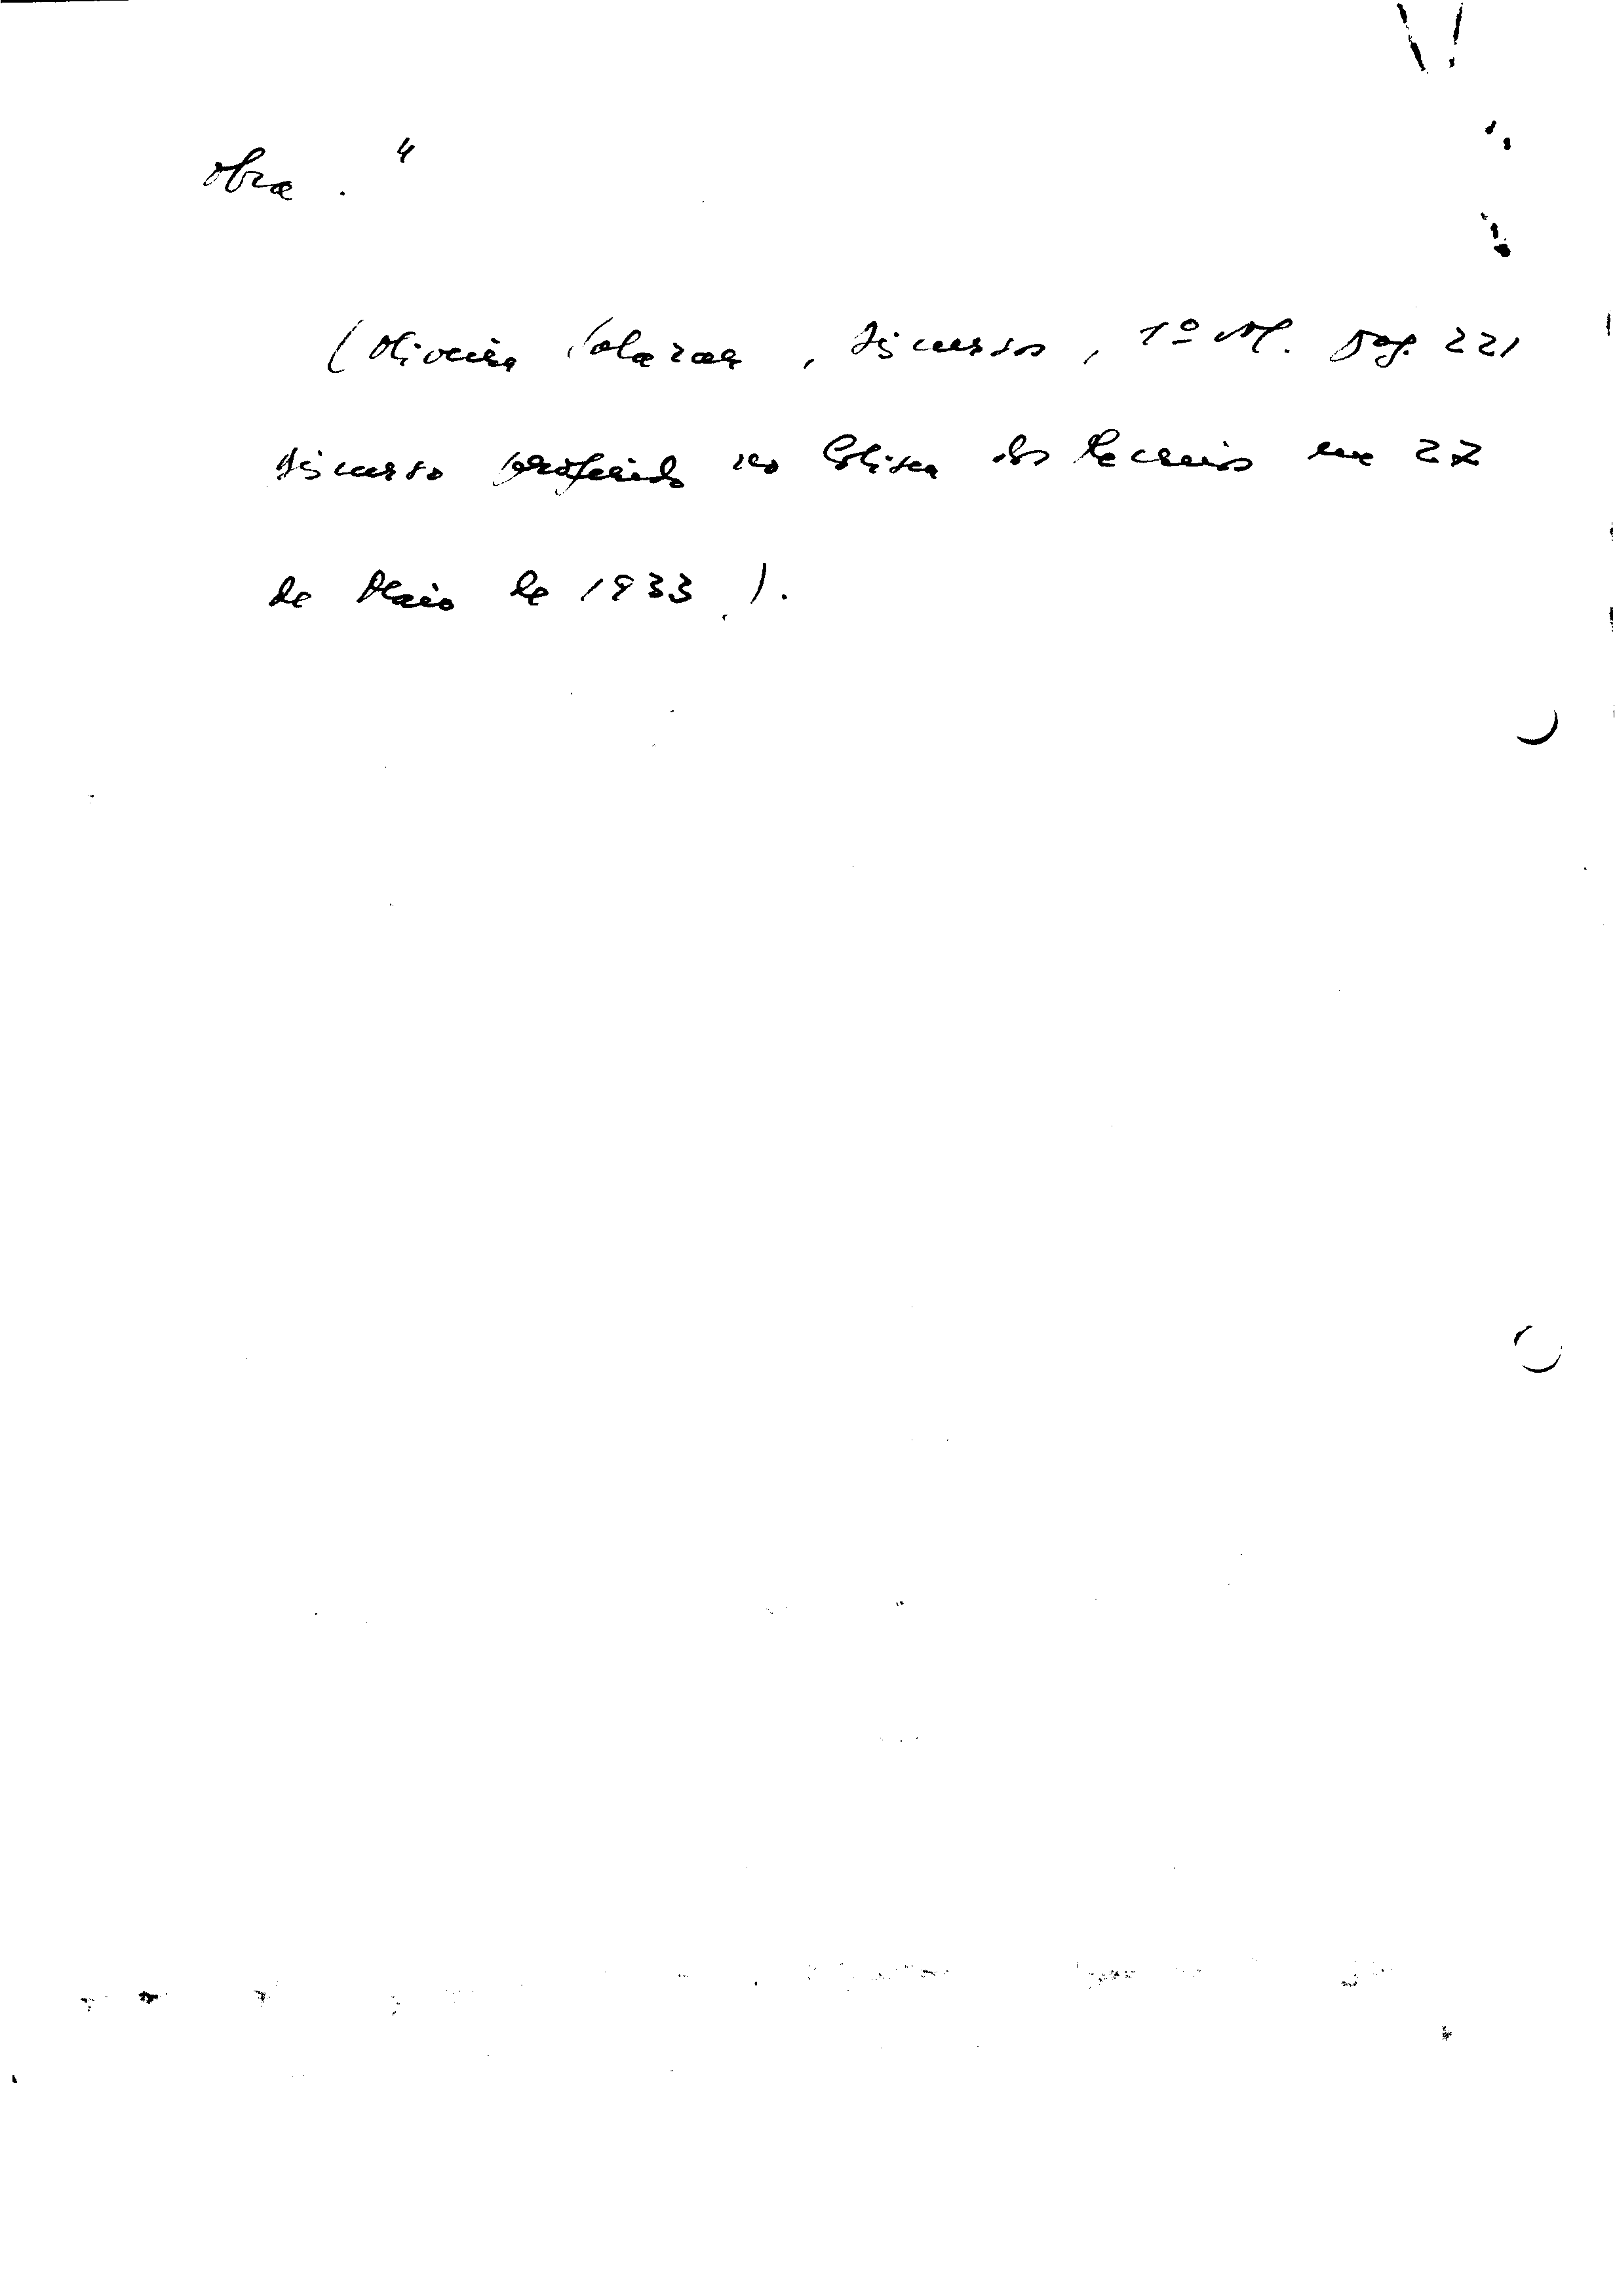 obra."
(Oliveira Salazar, Discursos, 1º vol. pag. 221
discurso proferido no Coliseu dos Recreios em 27
de Maio de 1933).